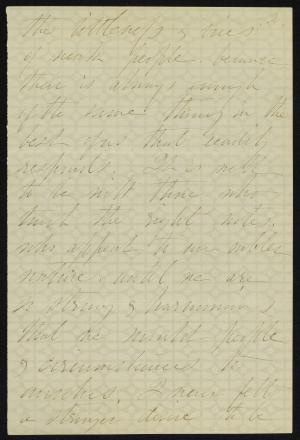 the littleness & vices
of weak people because
there is always enough
of the same thing in the
best of us that readily
responds. It is well
to be with those who
touch the right notes,
who appeal to our nobler
natures until we are
so strong & harmonious
that we mould people
& circumstances to
ourselves. I never felt
a stronger desire to be